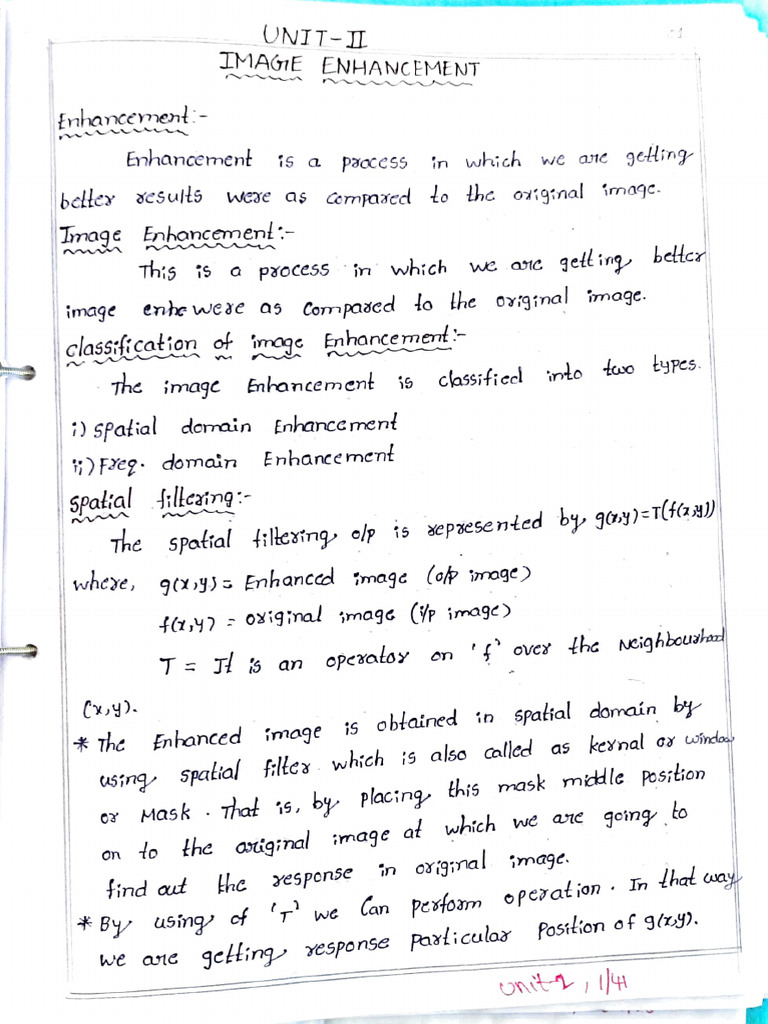 UNIT-II
IMAGE ENHANCEMENT
Enhancement:-
Enhancement is a process in which we are getting
better results were as compared to the original image.
Image Enhancement:-
This is a process in which we are getting better
image enhe were as compared to the original image.
classification of image Enhancement:-
The image Enhancement is classified into two types.
i) spatial domain Enhancement
ii) Freq. domain Enhancement
spatial filtering:-
The spatial filtering o/p is represented by g(x,y)=T(f(x,y))
where, g(x,y) = Enhanced image (o/p image)
f(x,y) = original image (i/p image)
T = It is an operator on 'f' over the Neighbourhood
(x,y).
* The Enhanced image is obtained in spatial domain by
using spatial filter which is also called as kernal or window
or Mask. That is, by placing this mask middle position
on to the original image at which we are going to
find out the response in original image.
* By using of 'T' we can perform operation. In that way
we are getting response particular position of g(x,y).
unit-2, 1/41